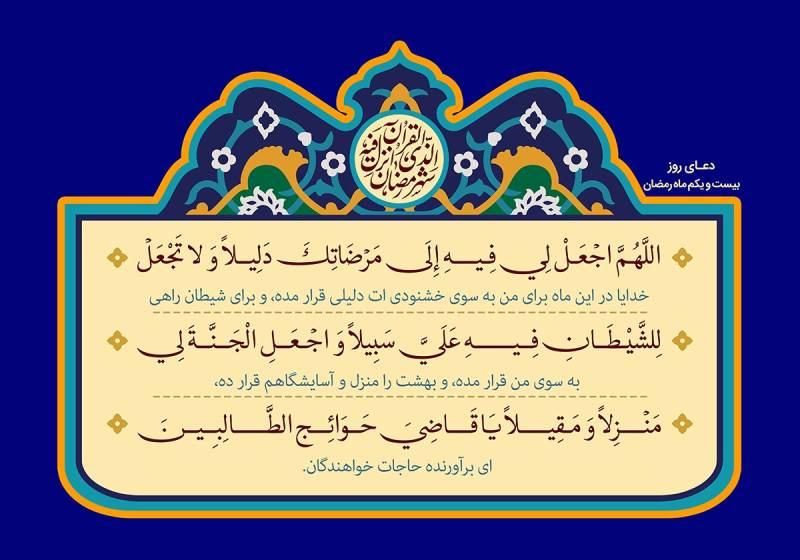 شهر رمضان الذی انزل فیه القرآن
دعای روز
بیست و یکم ماه رمضان
اللَّهُمَّ اجْعَلْ لِي فِيهِ إِلَى مَرْضَاتِكَ دَلِيلاً وَ لا تَجْعَلْ
خدایا در این ماه برای من به سوی خشنودی ات دلیلی قرار مده، و برای شیطان راهی
لِلشَّيْطَانِ فِيهِ عَلَيَّ سَبِيلاً وَ اجْعَلِ الْجَنَّةَ لِي
به سوی من قرار مده، و بهشت را منزل و آسایشگاهم قرار ده،
مَنْزِلاً وَ مَقِيلاً يَا قَاضِيَ حَوَائِجِ الطَّالِبِينَ
ای برآورنده حاجات خواهندگان.